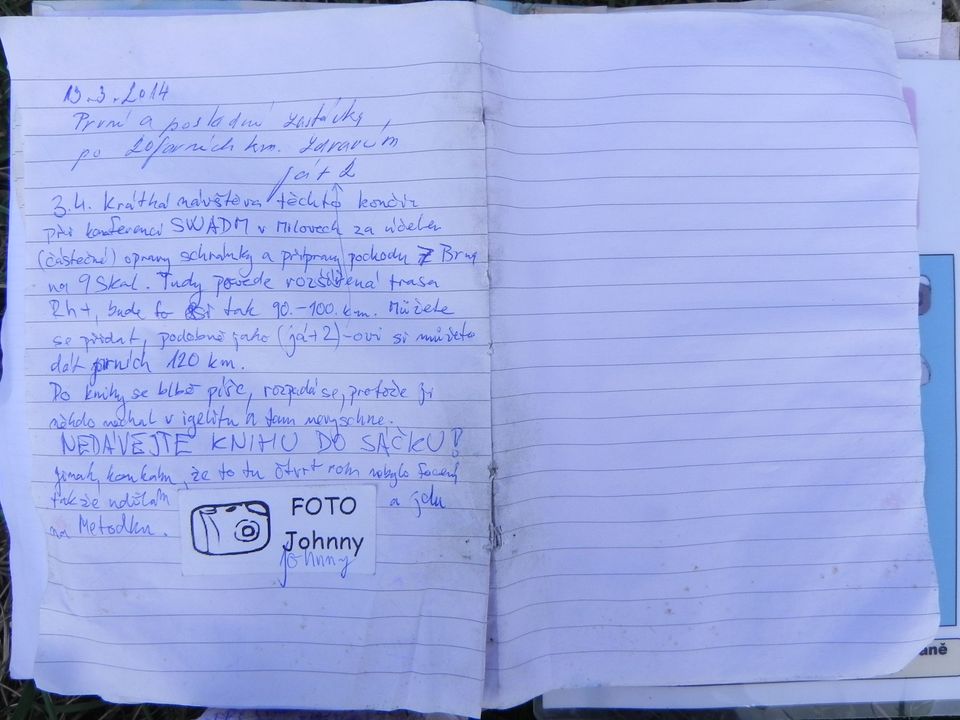 13.3.2014
První a poslední zastávky,
po 20 prvních km. Zdravím
já + 2
3.4. Krátká návštěva těchto končin
při konferenci SWADM v Milovech za účelem
(částečné) opravy schránky a přípravy pochodu Z Brna
na 9 Skal. Tudy povede rozšířená trasa
2h+, bude to si tak 90.-100. km. Můžete
se přidat, podobně jako (já+2)-ovi si můžete
dát prvních 120 km.
Do knihy se blbě píše, rozpadá se, protože ji
někdo nechal v igelitu a tam nevyschne.
NEDÁVEJTE KNIHU DO SÁČKU!
Jinak koukám, že to tu čtvrt roku nebylo focený
takže udělám a jdu
na Metodku.
FOTO
Johnny
Johnny
aně